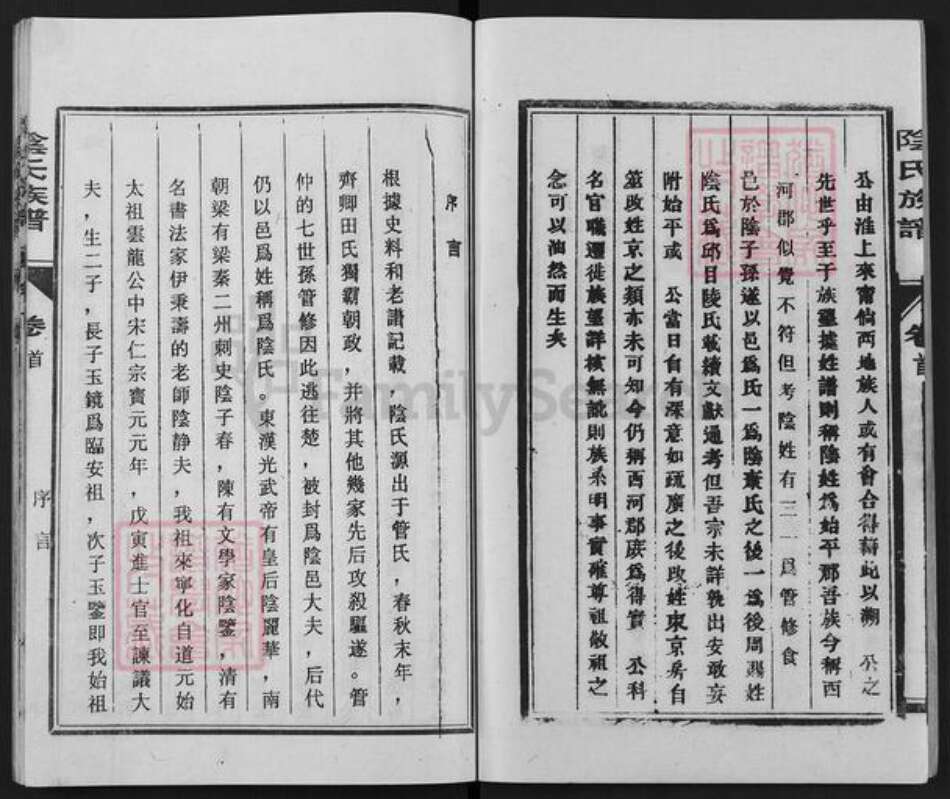 陰氏族譜
卷首
公由淮上來甯倘兩地族人或有會合得藉此以溯 公之
先世乎至于族望據姓譜則稱陰姓爲始平郡吾族今稱西
河郡似覺不符但考陰姓有三一爲管修食
邑於陰子孫遂以邑爲氏一爲陰康氏之後一爲後周賜姓
陰氏爲邱目陵氏載續文獻通考但吾宗未詳孰出安敢妄
附始平或 公當日自有深意如疏廣之後改姓束京房自
筮改姓京之類亦未可知今仍稱西河郡庻爲得實 公科
名官職遷徙族望詳核無訛則族系明事實確尊祖敬祖之
念可以油然而生矣
序言
根據史料和老譜記載 陰氏源出于管氏,春秋末年,
齊卿田氏獨霸朝政,并將其他幾家先后攻殺驅遂。管
仲的七世孫管修因此逃往楚,被封爲陰邑大夫,后代
仍以邑爲姓稱爲陰氏。東漢光武帝有皇后陰麗華,南
朝梁有梁秦二州刺史陰子春,陳有文學家陰鏗,清有
名書法家伊秉濤的老師陰静夫,我祖來寧化自道元始
太祖雲龍公中宋仁宗寳元元年,戊寅進士官至諫議大
夫,生二子,長子玉鏡爲臨安祖,次子玉鑒即我始祖
陰氏族譜
卷首
序言
FamilySearch